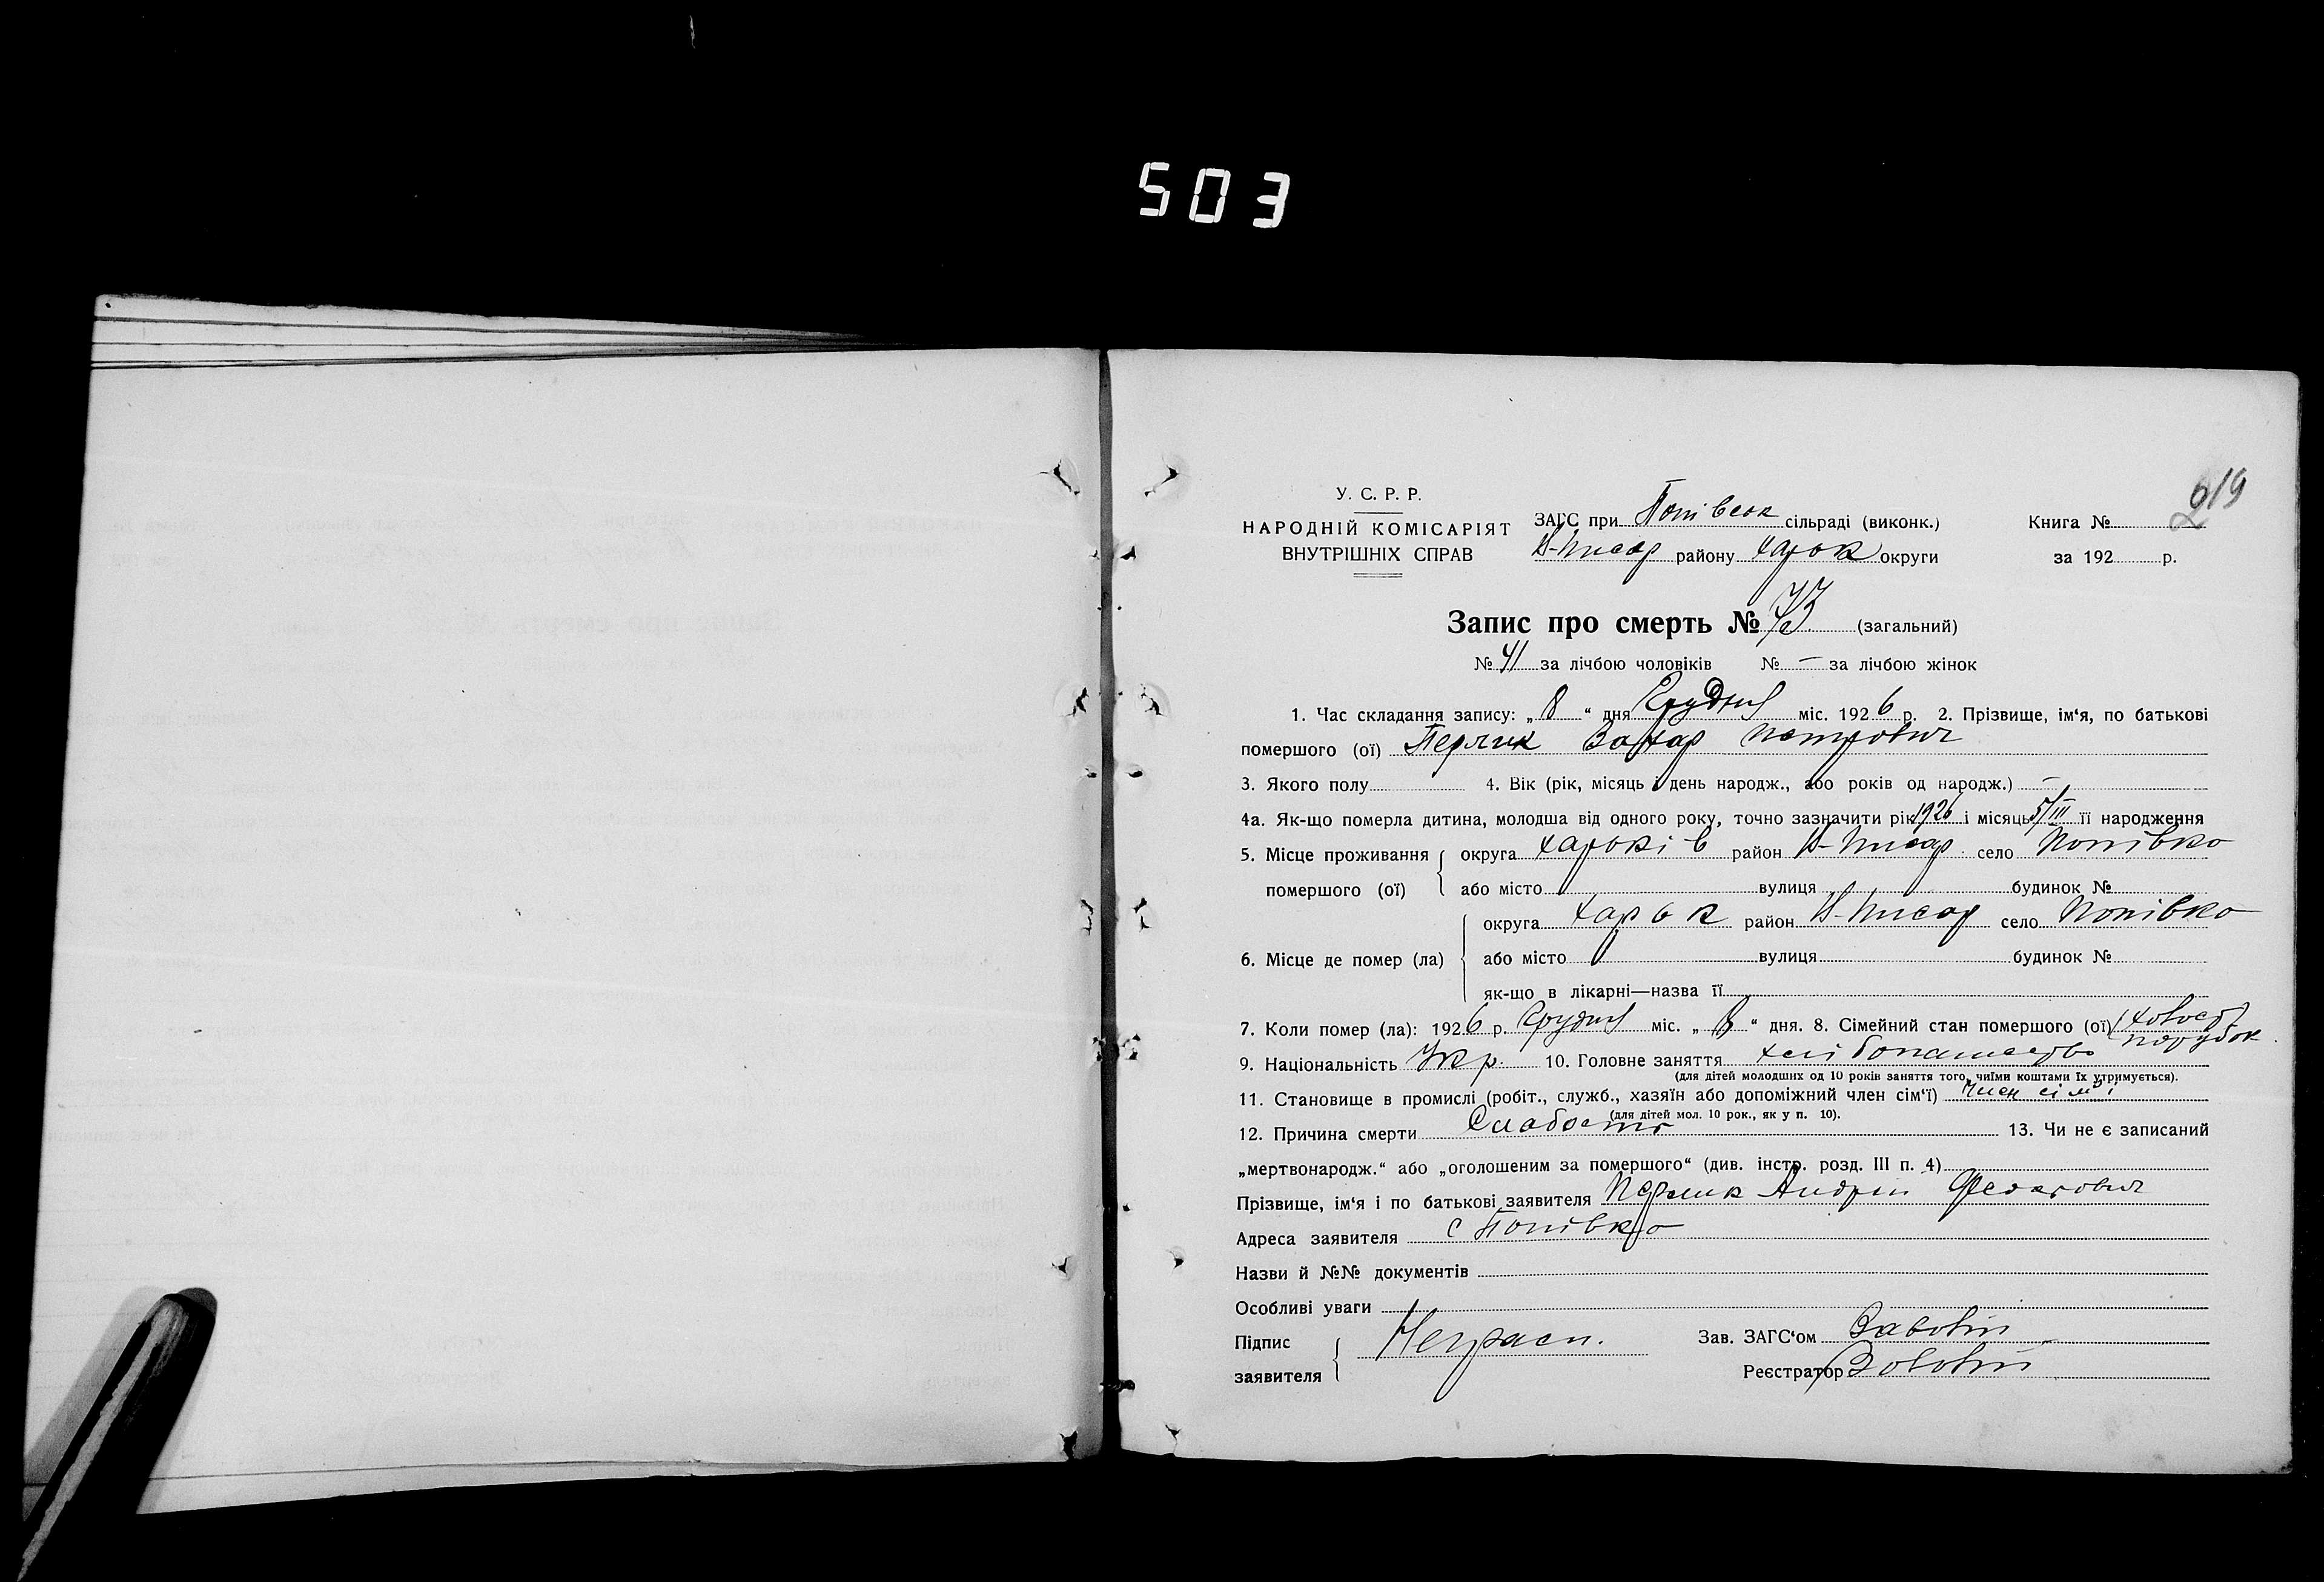 503
219
У. С. Р. Р.
НАРОДНІЙ КОМІСАРІЯТ
ВНУТРІШНІХ СПРАВ
ЗАГС при Попівськ сільраді (виконк.)
В-Писар району Харьк округи
Книга №
за 192 р.
Запис про смерть № 73 (загальний)
№ 41 за лічбою чоловіків № — за лічбою жінок
1. Час складання запису: „ 8 “ дня Грудня міс. 1926 р. 2. Прізвище, ім‘я, по батькові
помершого (ої) Перлик Захар Петрович
3. Якого полу 4. Вік (рік, місяць і день народж., або років од народж.) —
4а. Як-що померла дитина, молодша від одного року, точно зазначити рік 1926 і місяць 5/III її народження
5. Місце проживання помершого (ої) округа Харьків район В-Писар село Попівко
або місто вулиця будинок №
6. Місце де помер (ла) округа Харьк район В-Писар село Попівко
або місто вулиця будинок №
як-що в лікарні—назва її
7. Коли помер (ла): 1926 р. Грудня міс. „ 8 “ дня. 8. Сімейний стан помершого (ої)
парубок
9. Національність Укр. 10. Головне заняття хлібопашество
(для дітей молодших од 10 років заняття того, чиїми коштами їх утримується).
11. Становище в промислі (робіт., служб., хазяїн або допоміжний член сім‘ї) член сім'ї
(для дітей мол. 10 рок., як у п. 10).
12. Причина смерти Слабость 13. Чи не є записаний
„мертвонародж.“ або „оголошеним за помершого“ (див. інстр. розд. III п. 4)
Прізвище, ім‘я і по батькові заявителя Перлик Андрій
Адреса заявителя с Попівко
Назви й №№ документів
Особливі уваги
Підпис заявителя Неграсп. Зав. ЗАГС‘ом
Реєстратор